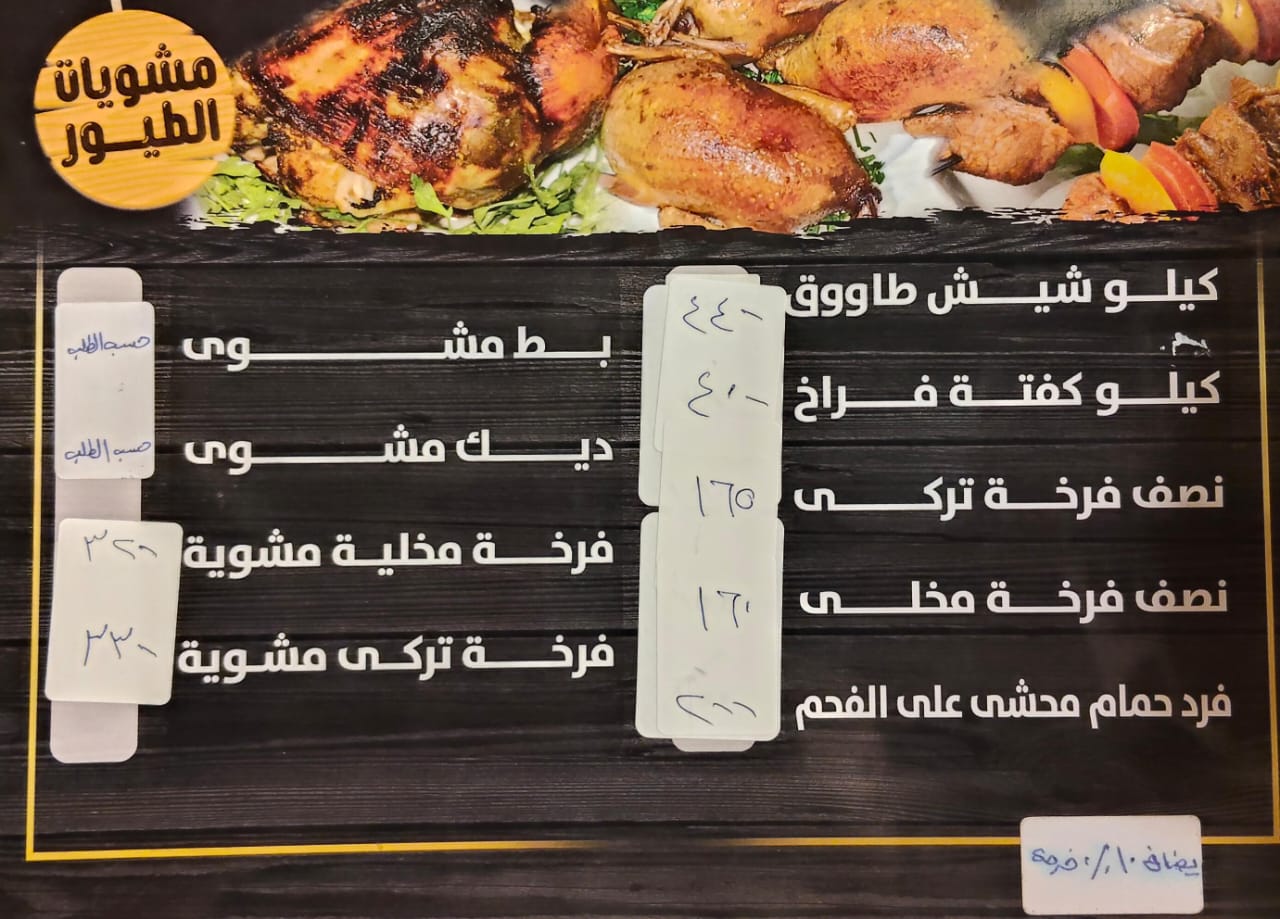 مشويات
الطيور
كيلو شيش طاووق ٤٤٠
كيلو كفتة فراخ ٤١٠
نصف فرخة تركى ١٦٥
نصف فرخة مخلى ١٦٠
فرد حمام محشى على الفحم ٢٠٠
بط مشوى حسب الطلب
ديك مشوى حسب الطلب
فرخة مخلية مشوية ٣٢٠
فرخة تركى مشوية ٣٣٠
يضاف ١٠٪ خدمة